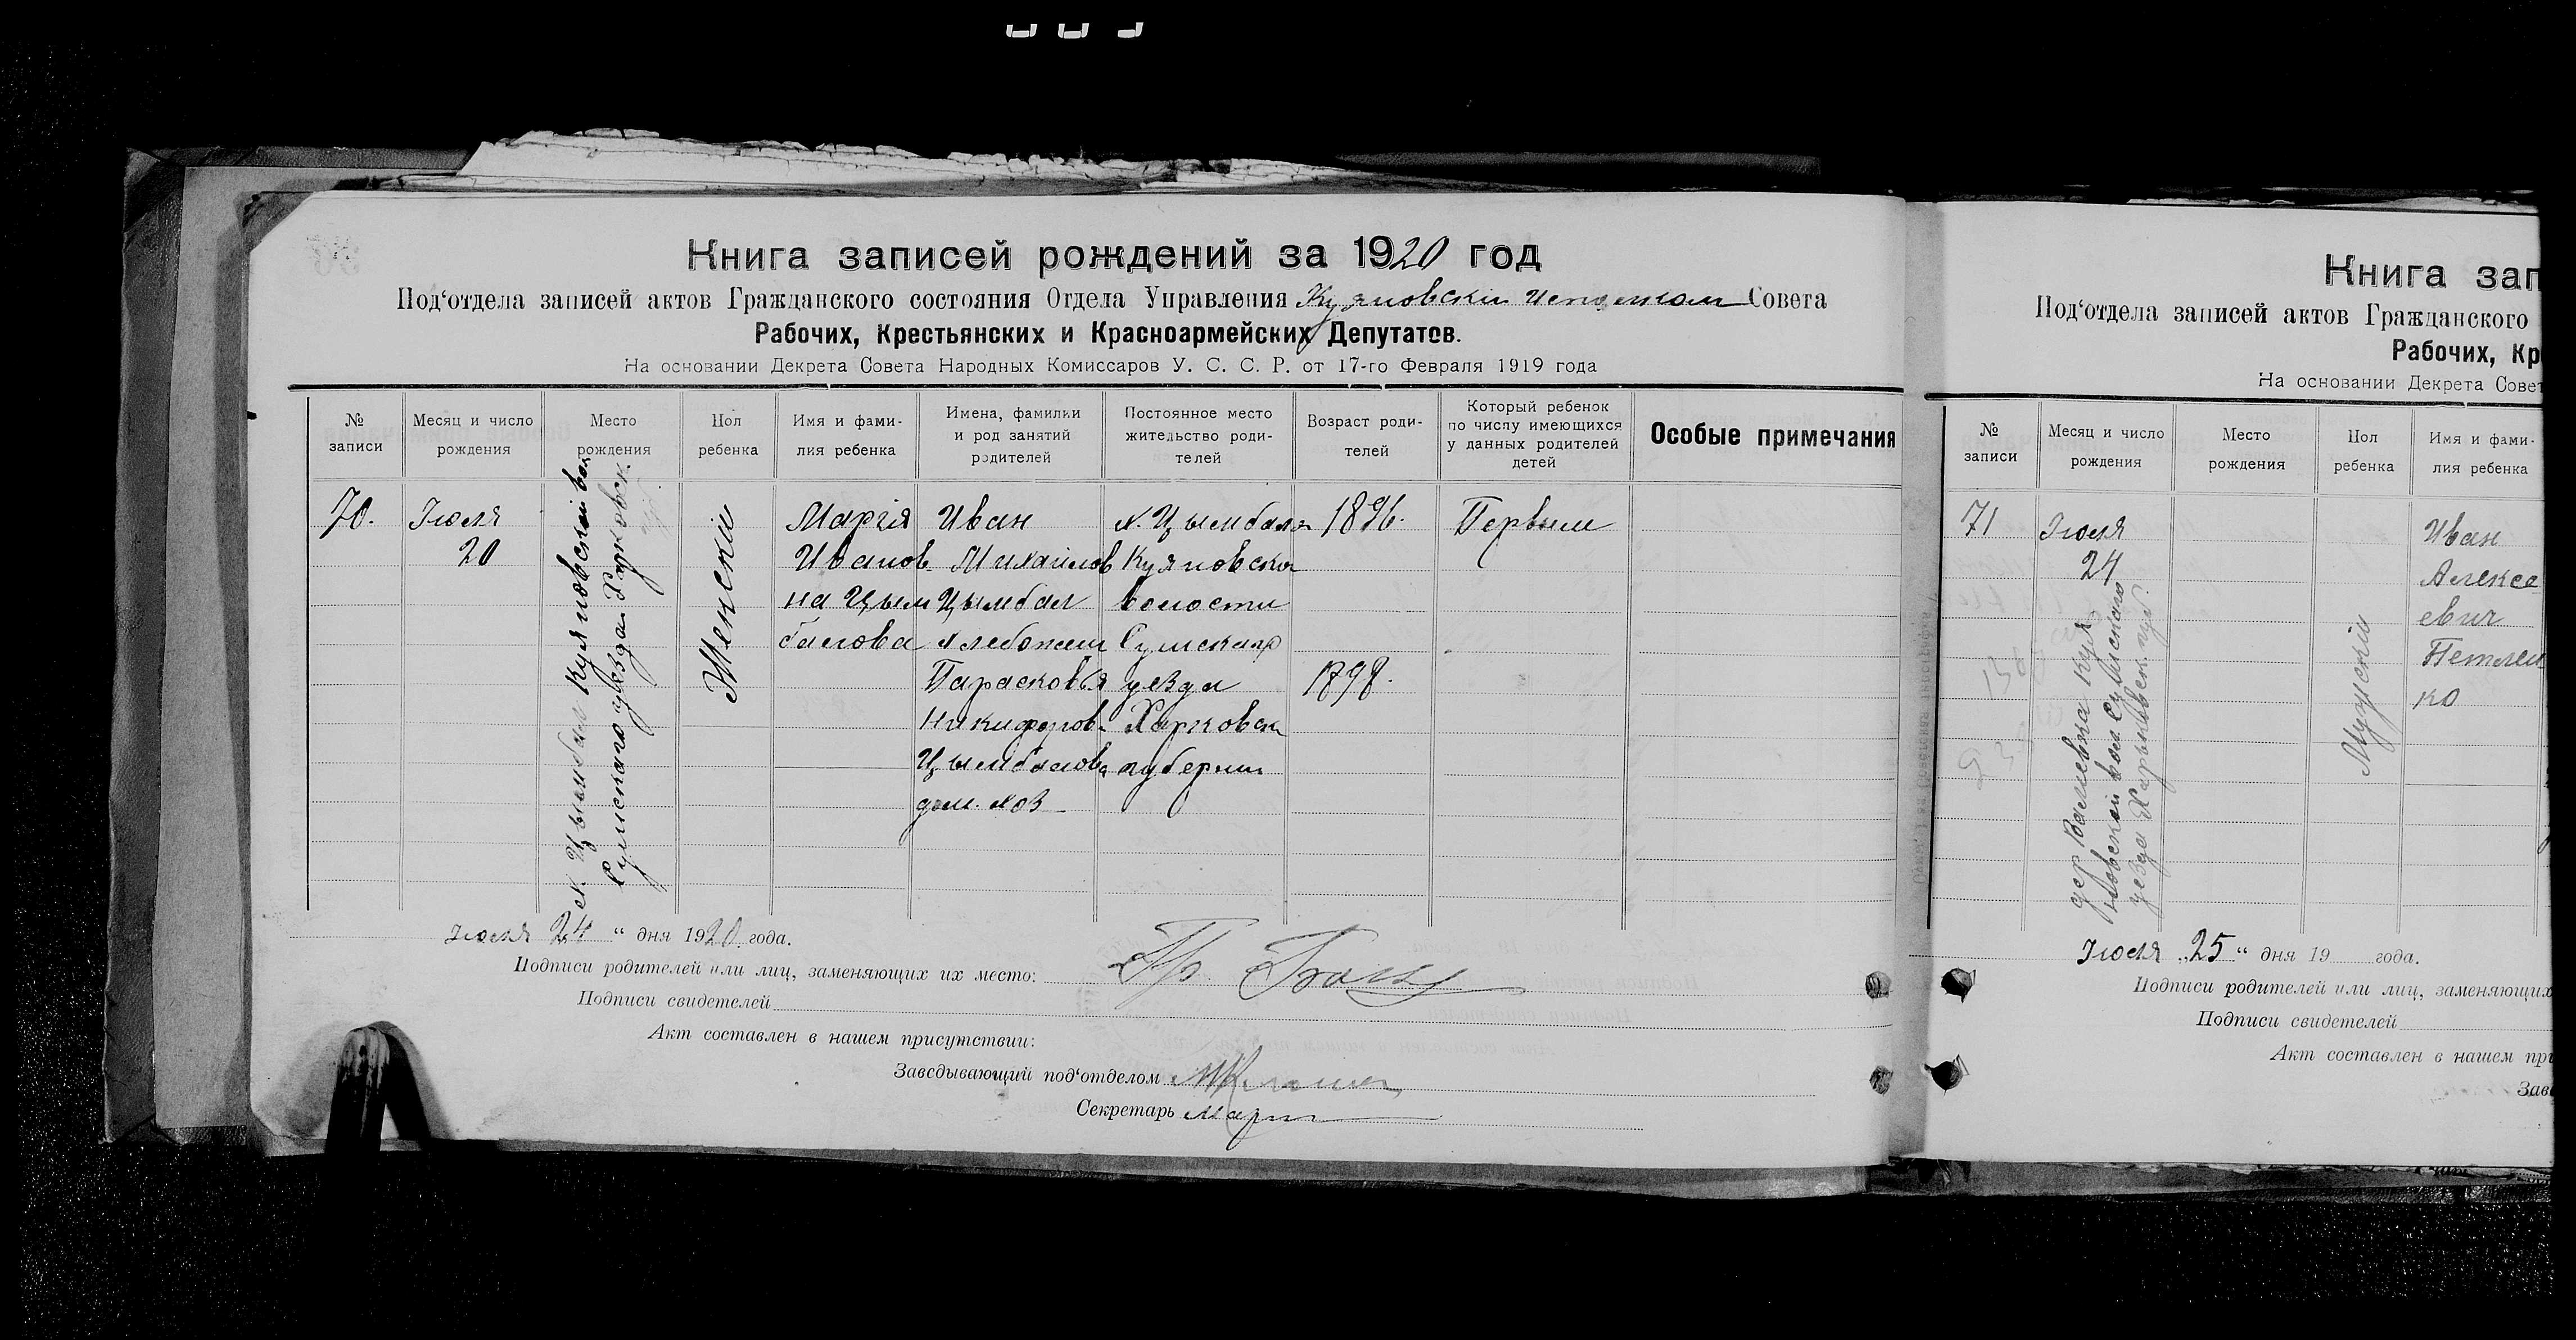 Книга записей рождений за 1920 год
Под‘отдела записей актов Гражданского состояния Отдела Управления Куяновскій Совета
Рабочих, Крестьянских и Красноармейских Депутатов.
На основании Декрета Совета Народных Комиссаров У. С. С. Р. от 17-го Февраля 1919 года
№ записи
Месяц и число рождения
Место рождения
Пол ребенка
Имя и фами-
лия ребенка
Имена, фамилии
и род занятий
родителей
Постоянное место
жительство роди-
телей
Возраст роди-
телей
Который ребенок
по числу имеющихся
у данных родителей
детей
Особые примечания
70.
Іюля
20
х. Цымбала Куяновской вол
Сумского уезда Харковск
губ.
Женскій
Марія
Иванов
на Цым
балова
Иван
Михайлов
Цымбал
хлебопаш
Парасковія
Никифоров
Цымбалова
дом. хоз
х. Цымбала
Куяновска
волости
Сумскаго
уезда
Харковск
губерніи
1896.
1898.
Первый
Іюля 24 “ дня 1920 года.
Подписи родителей или лиц, заменяющих их место:
Подписи свидетелей
Акт составлен в нашем присутствии:
Заведывающий под‘отделом
Секретарь
Книга зап
Под‘отдела записей актов Гражданского
Рабочих, Кр
На основании Декрета Совет
№ записи
Месяц и число рождения
Место рождения
Пол ребенка
Имя и фами-
лия ребенка
71
Іюля
24
дер Валиевка Куя
новской вол Сумского
уезда Харьковск. губ.
Мужскій
Иван
Алексе
евич
Петлен
ко
Іюля „25“ дня 19 года.
Подписи родителей или лиц, заменяющих
Подписи свидетелей
Акт составлен в нашем при
Заве